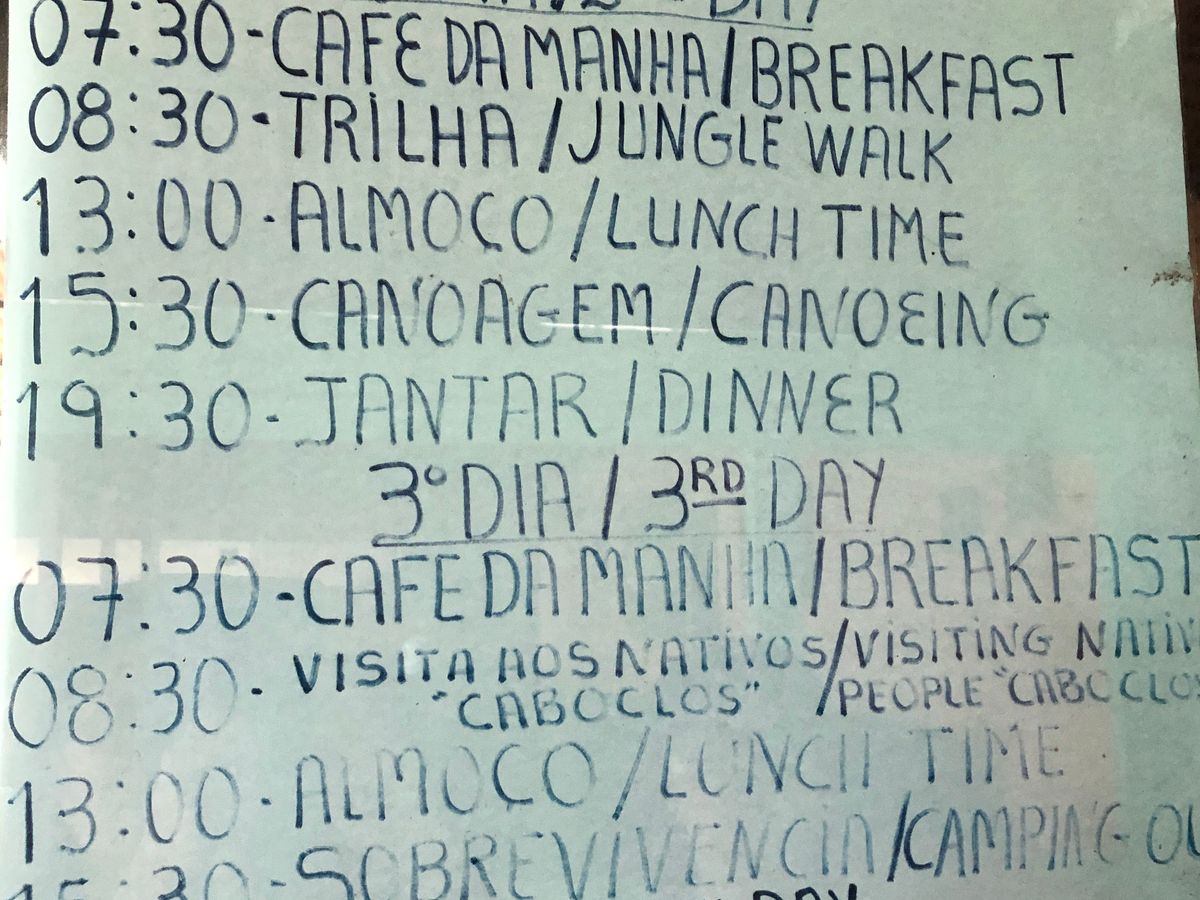 DAY
07:30-CAFE DA MANHA/BREAKFAST
08:30-TRILHA/JUNGLE WALK
13:00-ALMOÇO/LUNCH TIME
15:30-CANOAGEM/CANOEING
19:30-JANTAR/DINNER
3º DIA / 3RD DAY
07:30-CAFE DA MANHA/BREAKFAST
08:30-VISITA AOS NATIVOS/VISITING NATIV
"CABOCLOS" /PEOPLE "CABOCLOS
13:00-ALMOCO/LUNCH TIME
15:30-SOBREVIVENCIA/CAMPING OU
DAY